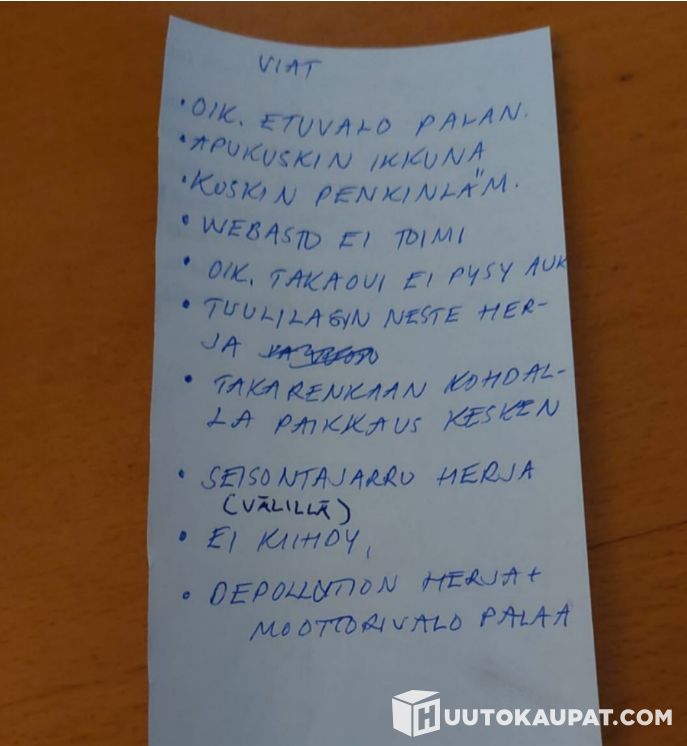 VIAT
• OIK. ETUVALO PALAN.
• APUKUSKIN IKKUNA
• KUSKIN PENKINLÄM.
• WEBASTO EI TOIMI
• OIK. TAKAOVI EI PYSY AUK
• TUULILASIN NESTE HER-
JA
• TAKARENKAAN KOHDAL-
LA PAIKKAUS KESKEN
• SEISONTAJARRU HERJA
(VÄLILLÄ)
• EI KIIHDY,
• DEPOLLUTION HERJA+
MOOTTORIVALO PALAA
HUUTOKAUPAT.COM